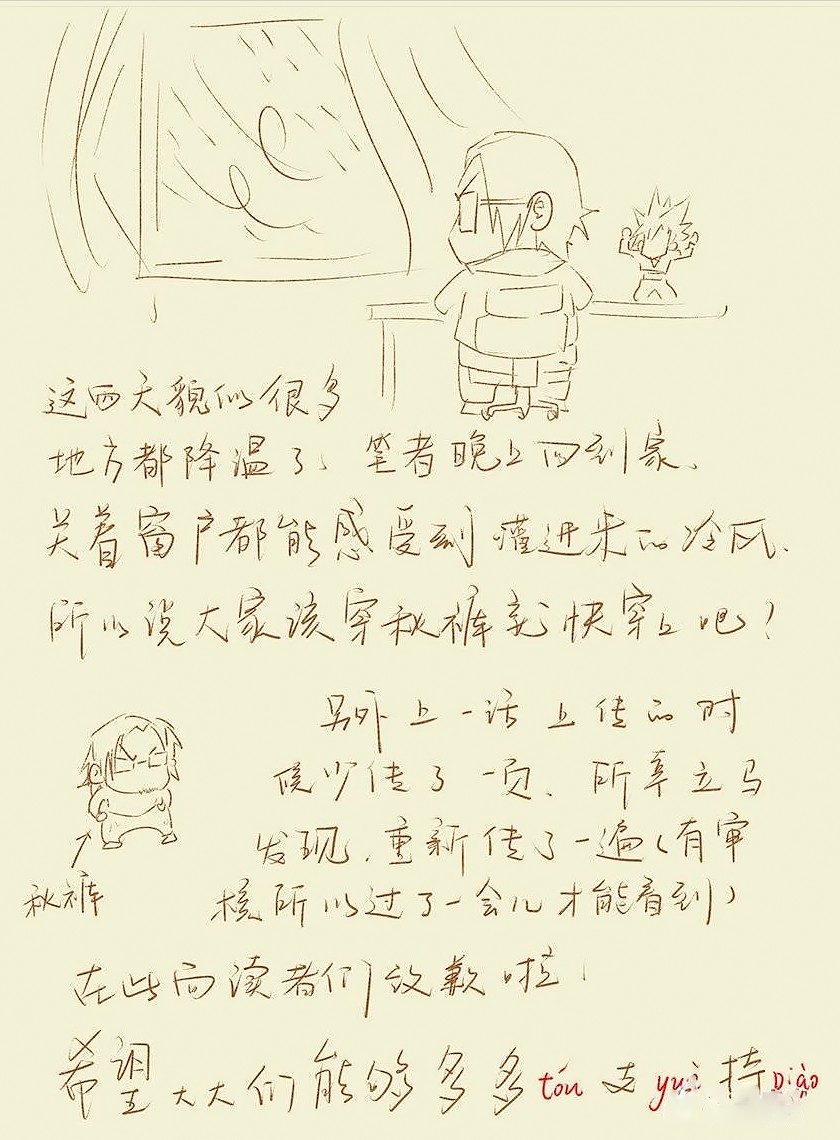 这两天貌似很多
地方都降温了、笔者晚上回到家、
关着窗户都能感受到灌进来的冷风、
所以说大家该穿秋裤就快穿上吧！
另外上一话上传的时
候少传了一页、所幸立马
发现、重新传了一遍（有审
核所以过了一会儿才能看到）
秋裤
在此向读者们致歉啦！
希望大大们能够多多tóu支yuè持piào